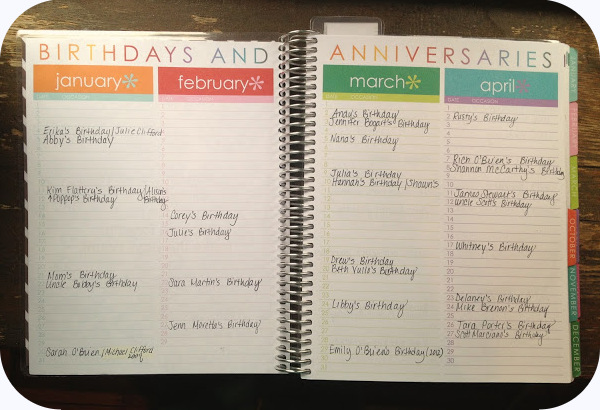 BIRTHDAYS AND ANNIVERSARIES
january*
Erika's Birthday/Julie Clifford
Abby's Birthday
Kim Flattery's Birthday/Alison's Birthday
& Poppop's Birthday
Mom's Birthday
Uncle Bubby's Birthday
Sarah O'Brien/Michael Clifford
february*
Corey's Birthday
Julie's Birthday
Sara Martin's Birthday
Jenn Moretta's Birthday
march*
Andy's Birthday
Jennifer Bogart's Birthday
Nana's Birthday
Julia's Birthday
Hannah's Birthday/Shawn's
Drew's Birthday
Beth Vullo's Birthday
Libby's Birthday
Emily O'Brien's Birthday (2012)
april*
DATE OCCASION
1
2 Rusty's Birthday
Rich O'Brien's Birthday
Shannan McCarthy's Birthday
James Stewart's Birthday
Uncle Scott's Birthday
Whitney's Birthday
20
Delaney's Birthday
Mike Brenon's Birthday
25
26 Tara Porter's Birthday
27 Scott Marciano's Birthday
28
29
30
OCTOBER
NOVEMBER
DECEMBER